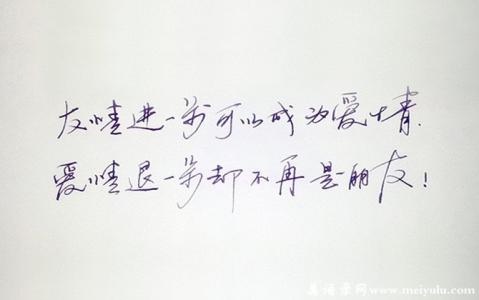 友情进一步可以成为爱情.
爱情退一步却不再是朋友!
美语录网 www.meiyulu.com